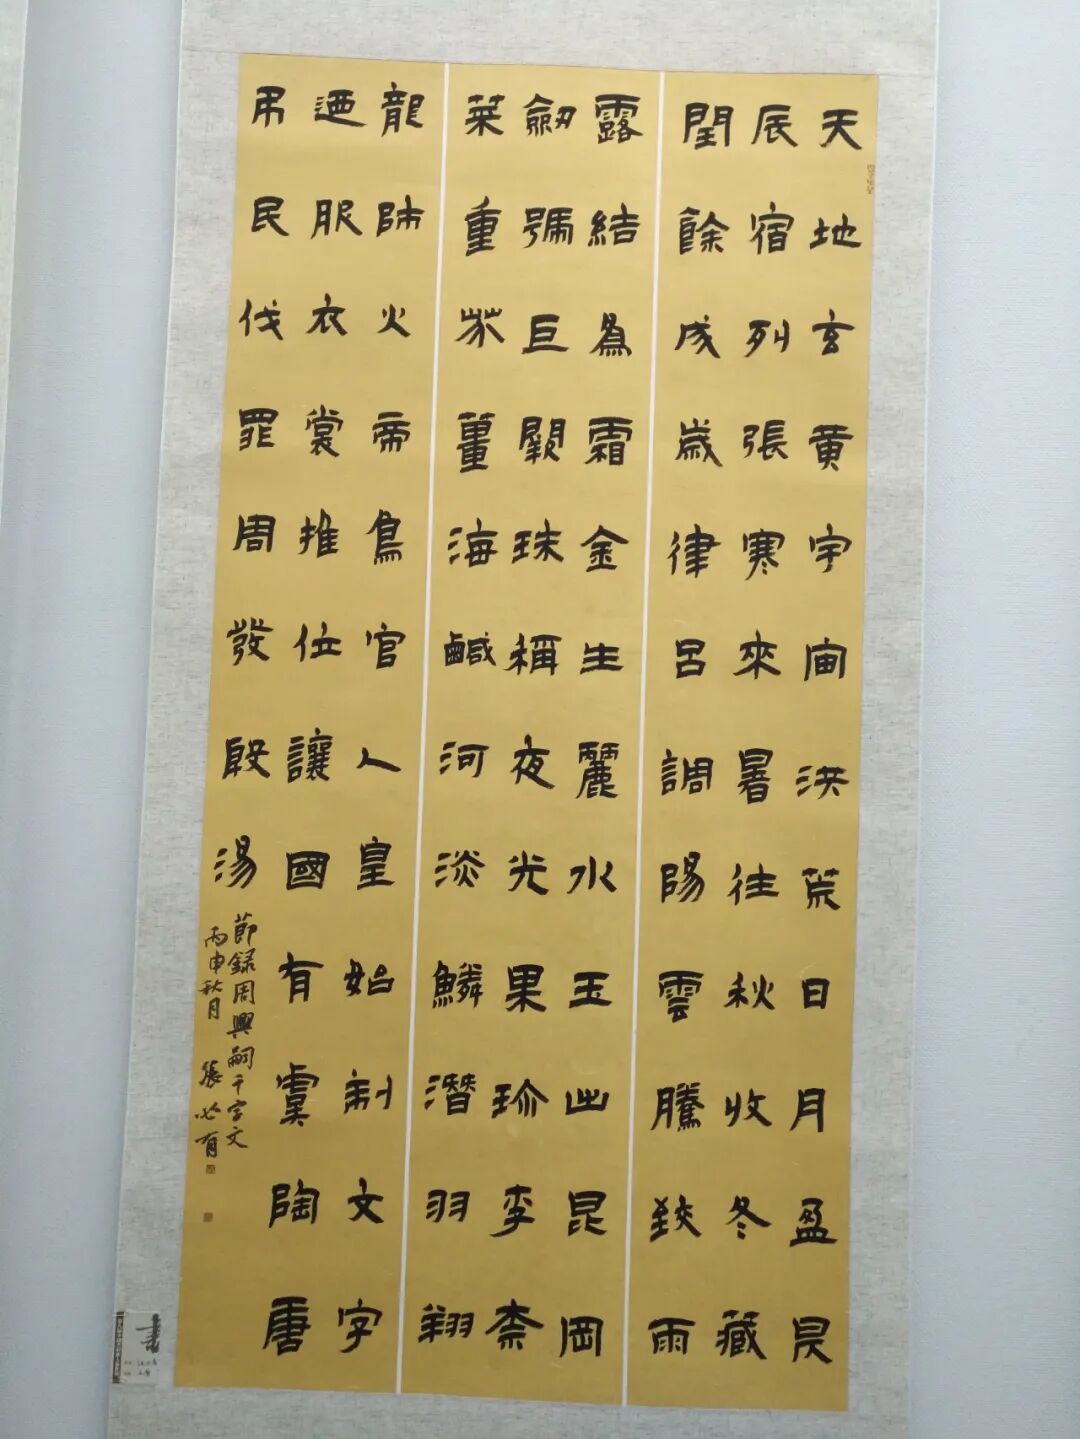 天地玄黄宇宙洪荒日月盈昃
辰宿列張寒來暑往秋收冬藏
閏餘成歲律呂調陽雲騰致雨
露結為霜金生麗水玉出昆岡
劒號巨闕珠稱夜光果珍李柰
菜重芥薑海鹹河淡鱗潛羽翔
龍師火帝鳥官人皇始制文字
迺服衣裳推位讓國有虞陶唐
弔民伐罪周發殷湯
節録周興嗣千字文
丙申秋月 張必有